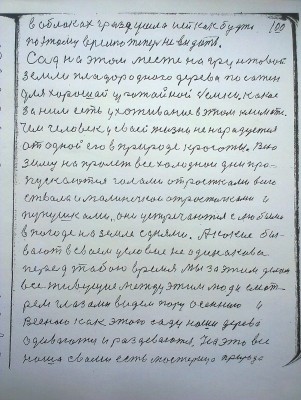 в облаках граздушла нет как будто 100
поэтому время теперь не видать.
Сад на этом месте на грунтовой
земли плодородного дерева по сотни
для хорошай урожайной Земли, какое
за ним есть ухоживание в этом климати.
Чем человек у своей жизни не нарадуется
от одной его в природе кросоты. В
зиму на пролет все холодной дни про-
пускаются голами отростками всего
ствала и маленичкими отростками и
пупушками, они устречаются с любими
в погоде на земле с днями. А какие быд-
вают в своем условие не одинакова
перед этабою время Мы за этим
все живущие между этим году смот-
рем глазами видем пору осенню и
Весеню как этого саду наши дерева
одиваются и раздеваются. На это все
наша с вами есть мастерица природа